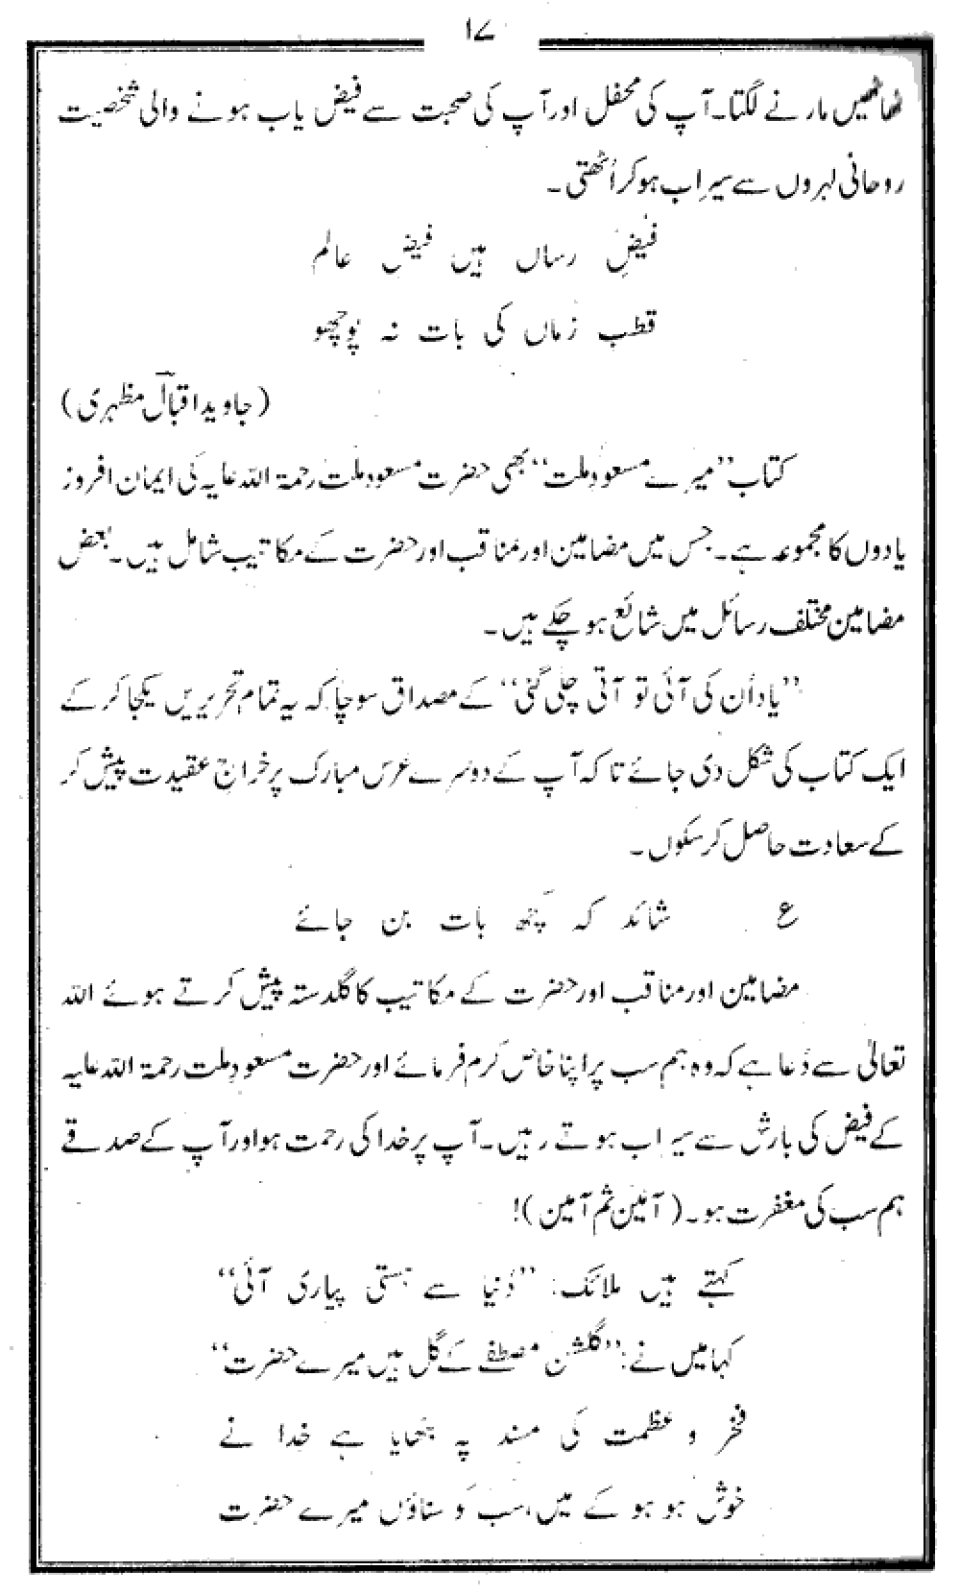 ۱۷
ٹھاٹھیں مارنے لگتا۔ آپ کی محفل اور آپ کی صحبت سے فیض یاب ہونے والی شخصیت
روحانی لہروں سے سیراب ہوکر اُٹھتی۔
فیضِ رساں ہیں فیضِ عالم
قطب زماں کی بات نہ پوچھو
(جاوید اقبالؔ مظہری)
کتاب ”میرے مسعودِ ملت“ بھی حضرت مسعود ملت رحمۃ اللہ علیہ کی ایمان افروز
یادوں کا مجموعہ ہے۔ جس میں مضامین اور مناقب اور حضرت کے مکاتیب شامل ہیں۔ بعض
مضامین مختلف رسائل میں شائع ہوچکے ہیں۔
”یاد اُن کی آئی تو آتی چلی گئی“ کے مصداق سوچا کہ یہ تمام تحریریں یکجا کرکے
ایک کتاب کی شکل دی جائے تاکہ آپ کے دوسرے عرس مبارک پر خراج عقیدت پیش کر
کے سعادت حاصل کرسکوں۔
ع شائد کہ کچھ بات بن جائے
مضامین اور مناقب اور حضرت کے مکاتیب کا گلدستہ پیش کرتے ہوئے اللہ
تعالیٰ سے دُعا ہے کہ وہ ہم سب پر اپنا خاص کرم فرمائے اور حضرت مسعودِ ملت رحمۃ اللہ علیہ
کے فیض کی بارش سے سیراب ہوتے رہیں۔ آپ پر خدا کی رحمت ہو اور آپ کے صدقے
ہم سب کی مغفرت ہو۔ (آمین ثم آمین)!
کہتے ہیں ملائک: ”دُنیا سے ہستی پیاری آئی“
کہا میں نے: ”گلشنِ مصطفےٰ کے گل ہیں میرے حضرت“
فخر و عظمت کی مسند پہ بٹھایا ہے خدا نے
خوش ہو ہو کے میں، سب کو سناؤں میرے حضرت